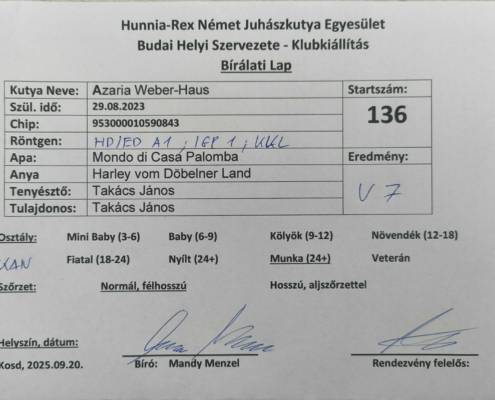 Hunnia-Rex Német Juhászkutya Egyesület
Budai Helyi Szervezete - Klubkiállítás
Bírálati Lap
Kutya Neve: Azaria Weber-Haus Startszám:
Szül. idő: 29.08.2023 136
Chip: 953000010590843
Röntgen: HD/ED A1 ; IGP 1 ; KKL
Apa: Mondo di Casa Palomba Eredmény:
Anya Harley vom Döbelner Land
Tenyésztő: Takács János V 7
Tulajdonos: Takács János
Osztály: Mini Baby (3-6) Baby (6-9) Kölyök (9-12) Növendék (12-18)
KAN Fiatal (18-24) Nyílt (24+) Munka (24+) Veterán
Szőrzet: Normál, félhosszú Hosszú, aljszőrzettel
Helyszín, dátum:
Kosd, 2025.09.20. Bíró: Mandy Menzel Rendezvény felelős: